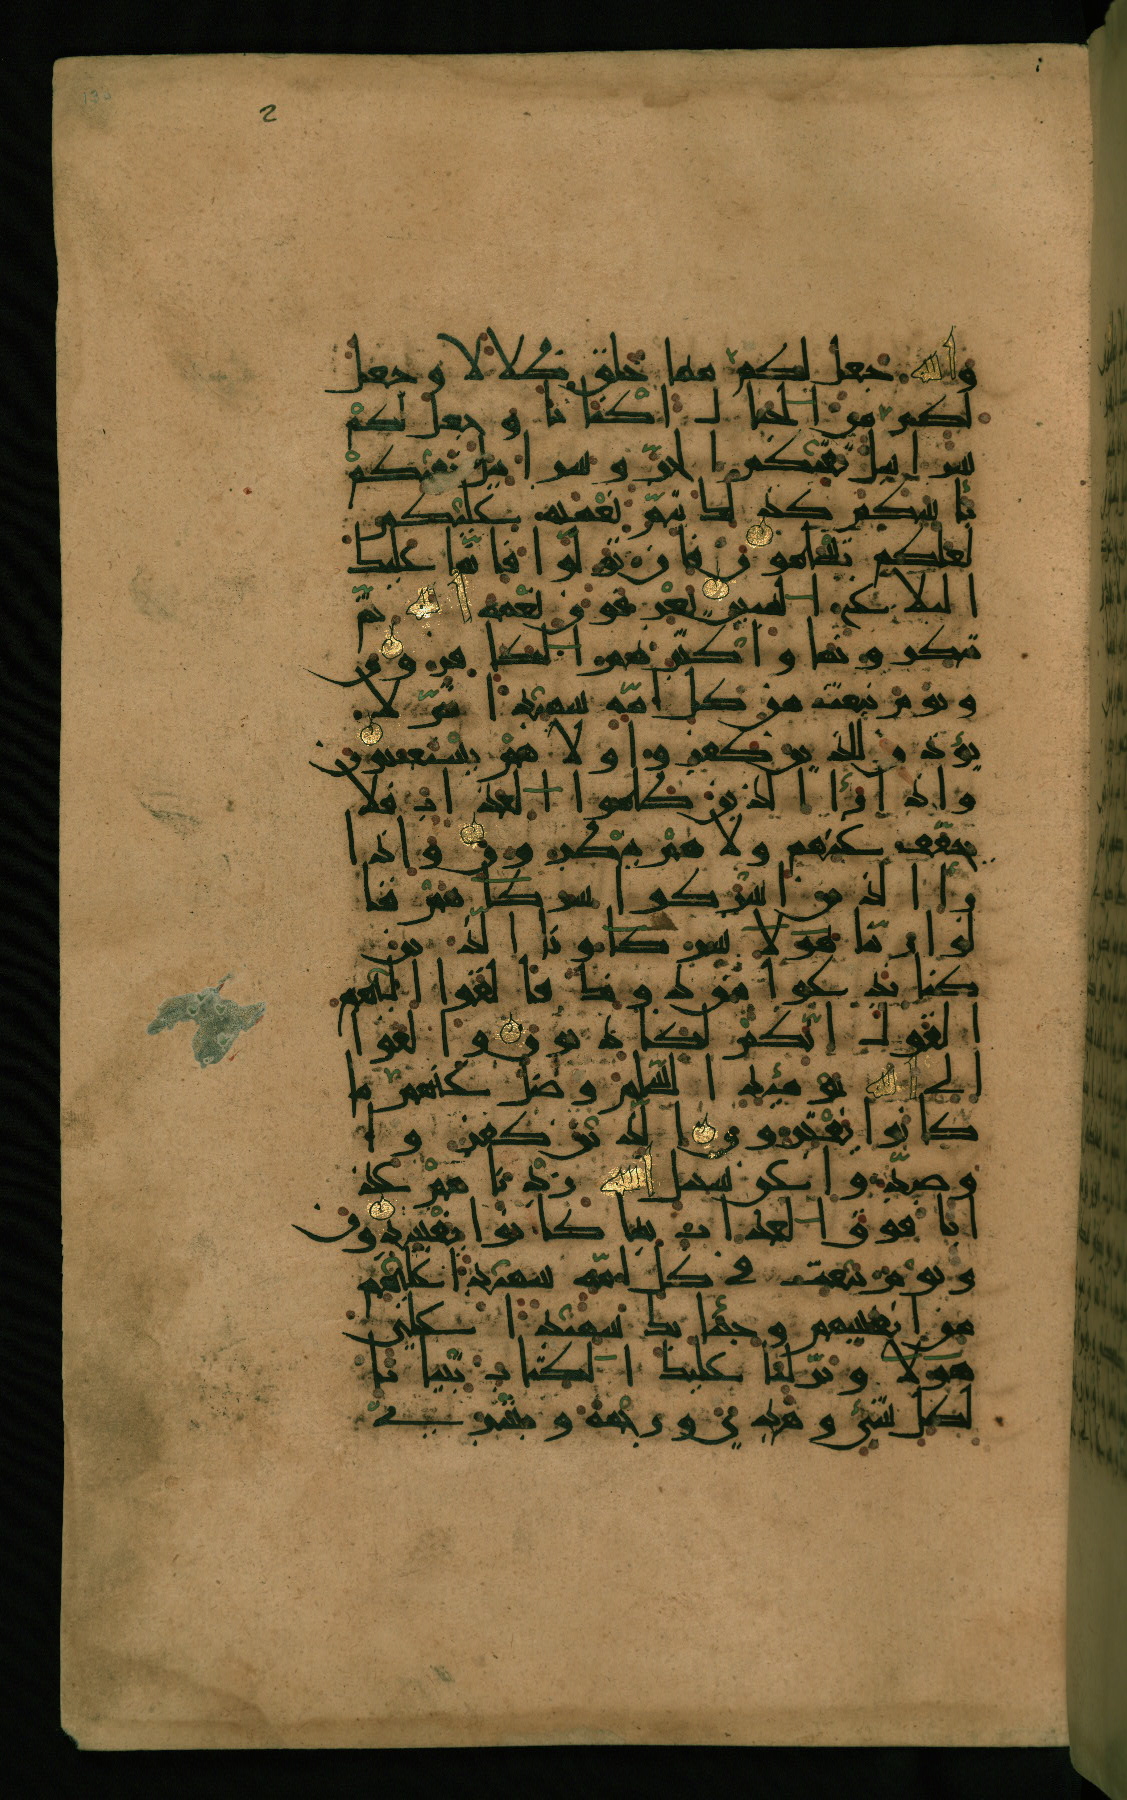 2
والله جعل لكم مما خلق ظلالا وجعل
لكم من الجبال اكنانا وجعل لكم
سرابيل تقيكم الحر وسرابيل تقيكم
باسكم كذلك يتم نعمته عليكم
لعلكم تسلمون فان تولوا فانما عليك
البلاغ المبين يعرفون نعمه الله ثم
ينكرونها واكثرهم الكافرون
ويوم نبعث من كل امه شهيدا ثم لا
يؤذن للذين كفروا ولا هم يستعتبون
واذا را الذين ظلموا العذاب فلا
يخفف عنهم ولا هم ينظرون واذا
را الذين اشركوا شركاهم قا
لوا ربنا هولا شركاونا الذين
كنا ندعوا من دونك فالقوا اليهم
القول انكم لكاذبون والقوا
الى الله يومئذ السلم وضل عنهم ما
كانوا يفترون الذين كفروا
وصدوا عن سبيل الله زدناهم عذ
ابا فوق العذاب بما كانوا يفسدون
ويوم نبعث في كل امه شهيدا عليهم
من انفسهم وجئنا بك شهيدا على
هولا ونزلنا عليك الكتاب تبيانا
لكل شي وهدى ورحمه وبشرى